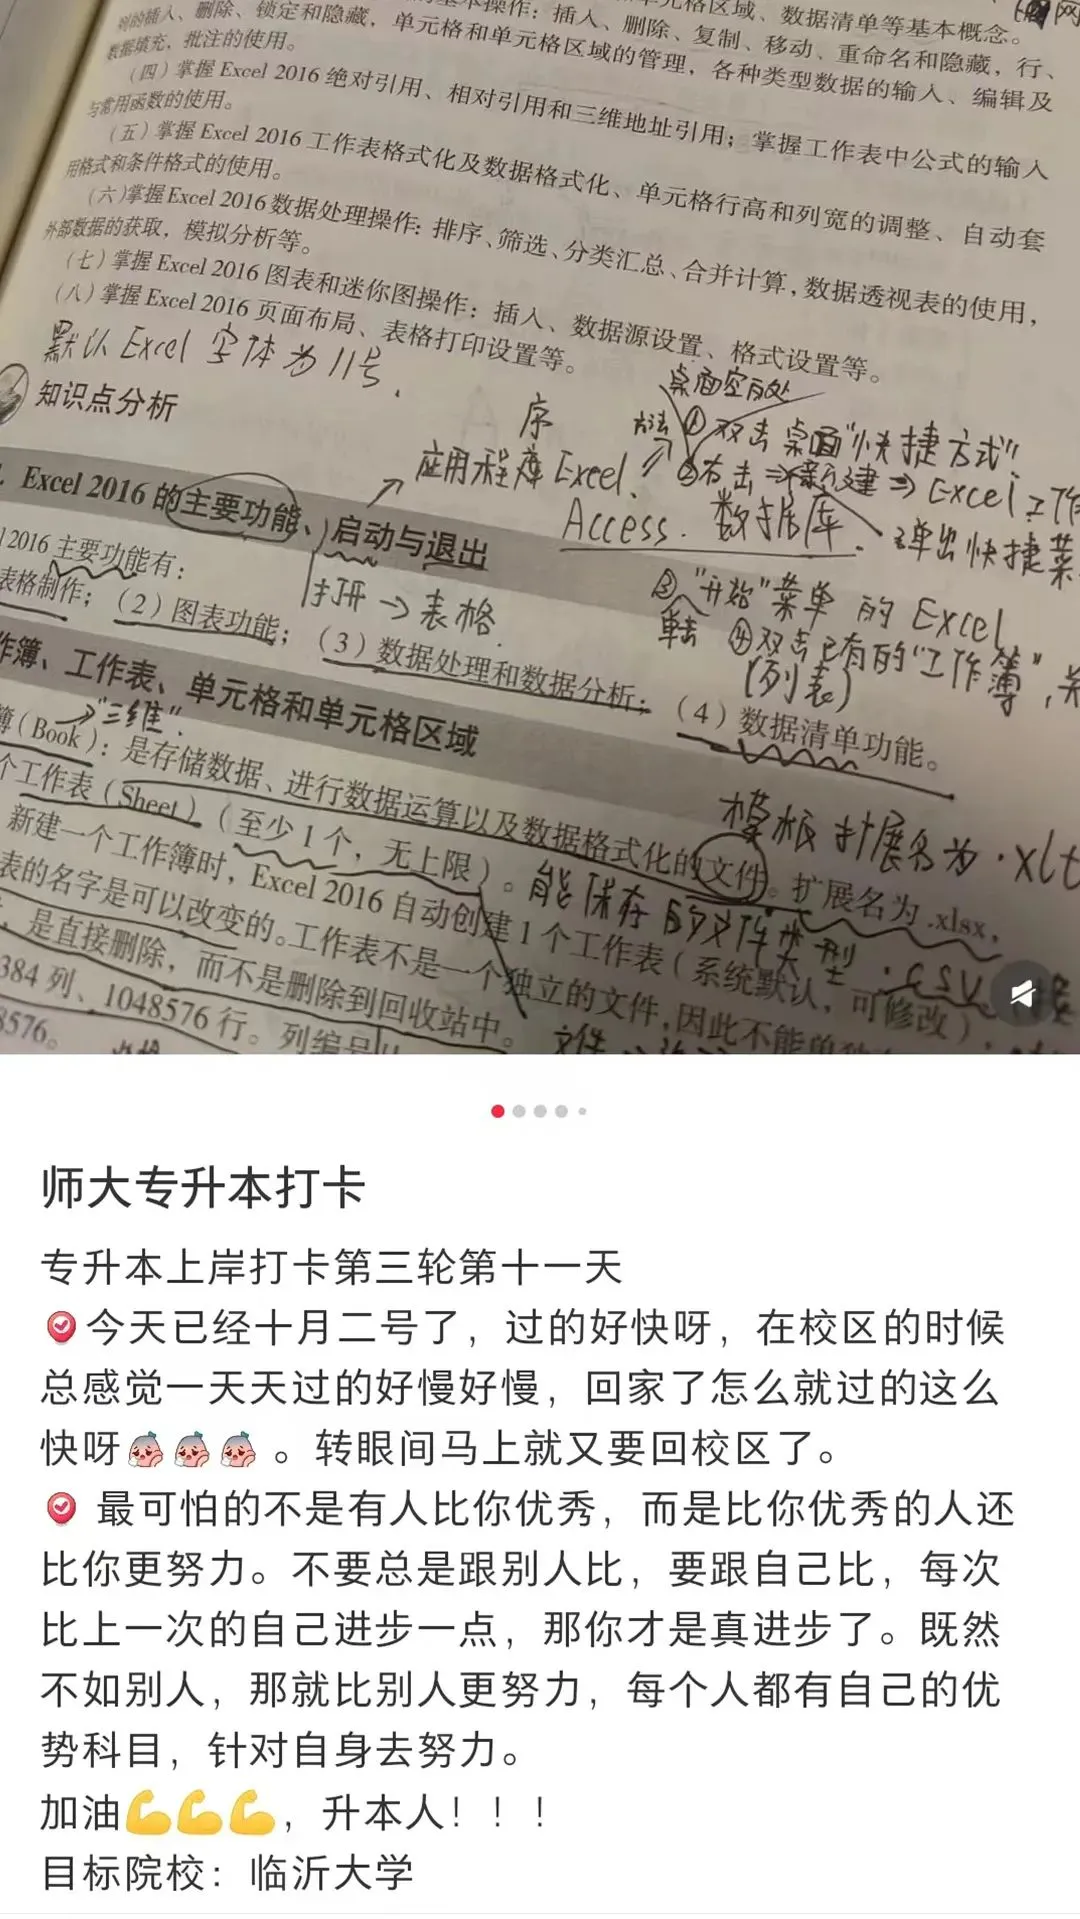 单元格区域、数据清单等基本概念。
基本操作：插入、删除、复制、移动、重命名和隐藏，行、
列的插入、删除、锁定和隐藏，单元格和单元格区域的管理，各种类型数据的输入、编辑及
数据填充，批注的使用。
（四）掌握 Excel 2016 绝对引用、相对引用和三维地址引用；掌握工作表中公式的输入
与常用函数的使用。
（五）掌握 Excel 2016 工作表格式化及数据格式化、单元格行高和列宽的调整、自动套
用格式和条件格式的使用。
（六）掌握 Excel 2016 数据处理操作：排序、筛选、分类汇总、合并计算，数据透视表的使用，
外部数据的获取，模拟分析等。
（七）掌握 Excel 2016 图表和迷你图操作：插入、数据源设置、格式设置等。
（八）掌握 Excel 2016 页面布局、表格打印设置等。
默认 Excel 字体为 11号.
桌面空白处
知识点分析
序
方法 ①双击桌面"快捷方式"
应用程度 Excel.
②右击⇒新建⇒Excel 工作
Access. 数据库.
弹出快捷菜
. Excel 2016 的主要功能、启动与退出
打开→表格.
③"开始"菜单 的 Excel
单击 ④双击已有的"工作簿",
(列表)
2016 主要功能有：
表格制作；（2）图表功能；（3）数据处理和数据分析；（4）数据清单功能。
作簿、工作表、单元格和单元格区域
"三维".
簿（Book）：是存储数据、进行数据运算以及数据格式化的文件。扩展名为 .xlsx，
模板扩展名为 .xlt
个工作表（Sheet）（至少 1 个，无上限）。
能保存的文件类型 .csv
新建一个工作簿时，Excel 2016 自动创建 1 个工作表（系统默认，可修改）
表的名字是可以改变的。工作表不是一个独立的文件,因此不能单独
，是直接删除，而不是删除到回收站中。
文件
384 列、1048576 行。列编号
8576。
师大专升本打卡
专升本上岸打卡第三轮第十一天
今天已经十月二号了，过的好快呀，在校区的时候
总感觉一天天过的好慢好慢，回家了怎么就过的这么
快呀。转眼间马上就又要回校区了。
最可怕的不是有人比你优秀，而是比你优秀的人还
比你更努力。不要总是跟别人比，要跟自己比，每次
比上一次的自己进步一点，那你才是真进步了。既然
不如别人，那就比别人更努力，每个人都有自己的优
势科目，针对自身去努力。
加油💪💪💪，升本人！！！
目标院校：临沂大学